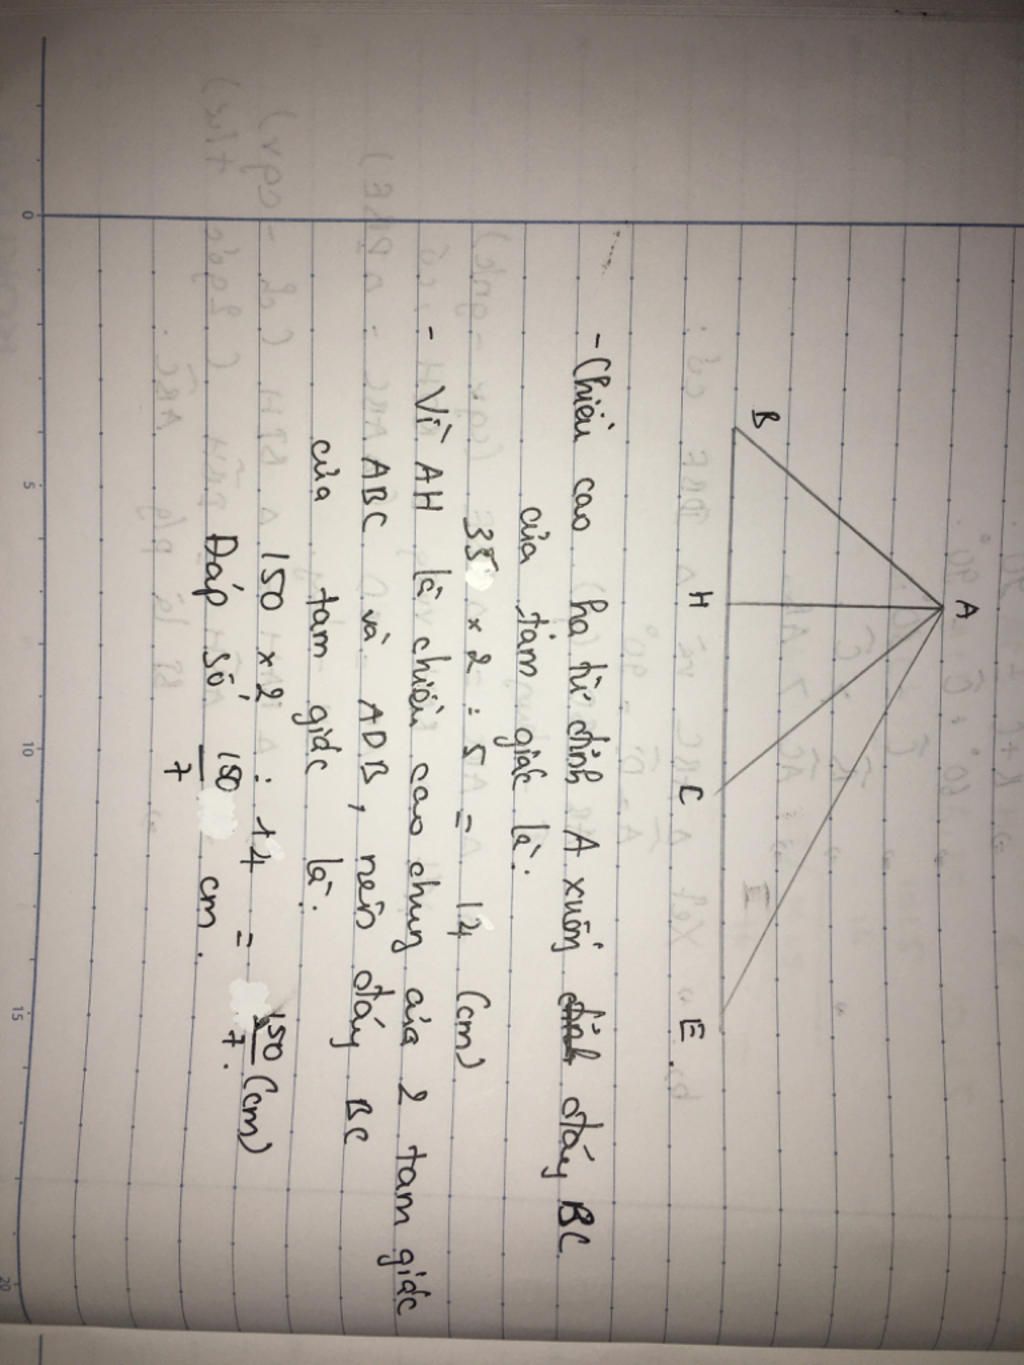 A
B
H
C
E
- Chiều cao hạ từ đỉnh A xuống đáy BC
của tam giác là:
35 x 2 : 5 = 14 (cm)
- Vì AH là chiều cao chung của 2 tam giác
ABC và ADB, nên đáy BC
của tam giác là:
150 x 2 : 14 = 150/7 (cm)
Đáp số 150/7 cm.
0
5
10
15
20